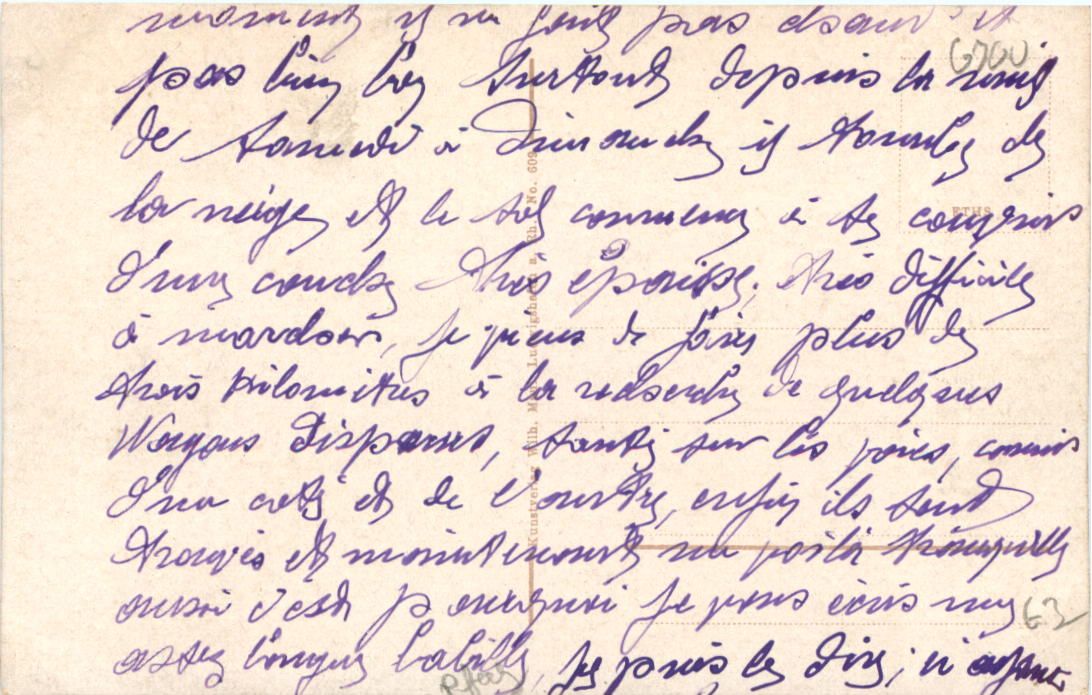 moment il ne fait pas chaud et
pas bien bon surtout depuis la nuit
de samedi à Dimanche il tombe de
la neige et le sol commence à se couvrir
d'une couche très épaisse, très difficile
à marcher, je viens de faire plus de
trois Kilomètres à la recherche de quelques
Wagons Disparus, tantôt sur les voies, comme
d'un coté et de l'autre, enfin ils sont
trouvés et maintenant me voilà tranquille
aussi c'est pourquoi je vous écris une
assez longue babille, je puis le dire, si
6700
63
Kunstverlag Wilh. M. Ludwigshafen a. Rh. No. 609